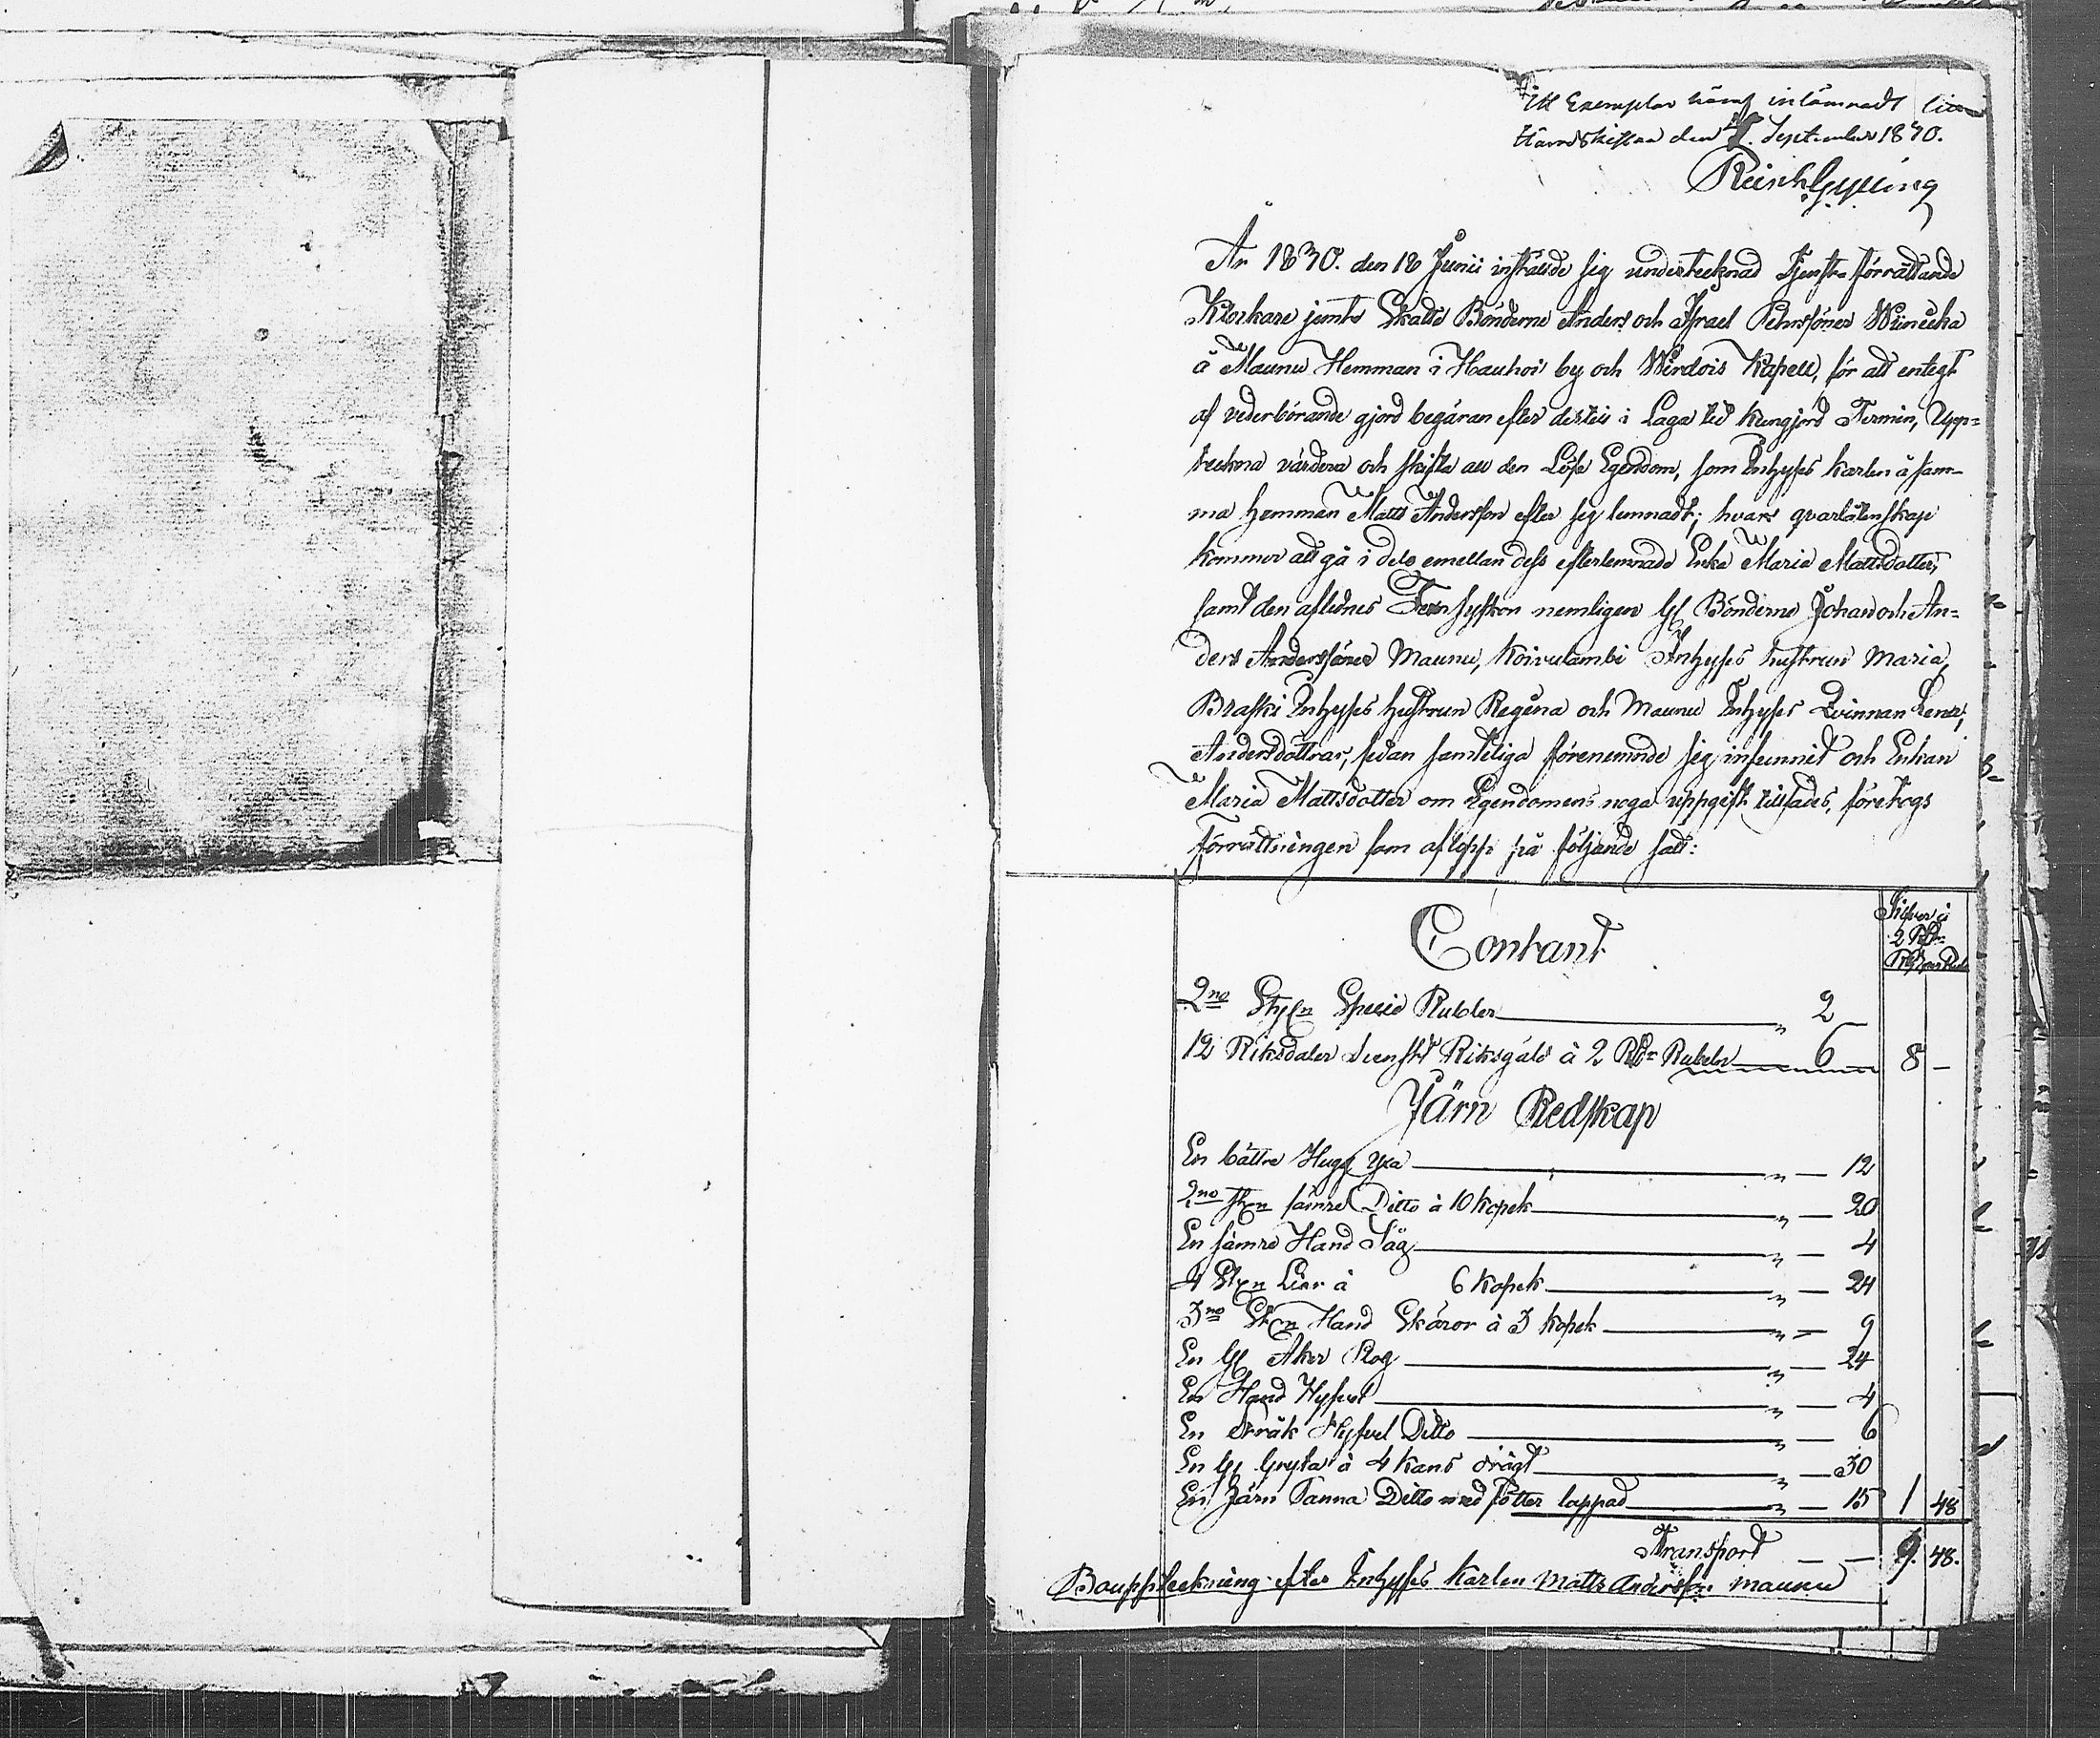 Ett Exemplar häraf inlämnadt
den 7. September 1870.
År 1870. den 18 Junii instälde sig undertecknad Tjenste förrättande
Klockare jemte Skatte Bönderne Anders och Israel Pehrssöner
å Maunu Hemman i Hauhoi by och Wirdois Kapell, för att enligt
af vederbörande gjord begäran efter dertill i Laga tid kungjord Termin, Upp=
teckna värdera och skifta all den Lösa Egendom, som Inhyses karlen å sam-
ma hemman Matts Andersson efter sig lemnadt; hvars qvarlåtenskap
kommer att gå i dele emellan dess efterlemnade Enka Maria Mattsdotter,
samt den aflidnes Fem syskon nemligen Bönderne Johan och An=
ders Anderssöner Maunu, Koivulambi Inhyses hustrun Maria,
Braski Inhyses hustrun Regina och Maunu Inhyses Qvinnan Lena,
Andersdöttrar, sedan samteliga förenemnde sig infunnit och Enkan
Maria Mattsdotter om Egendomens noga uppgift tillsades, företogs
förrättningen som aflopp på följande sätt:
Contant
Silfver à
2 
2no St:n Specie Rubler " 2 —
12 Riksdaler Svenskt Riksgäld à 2 Rdr Rubeln 6 8 —
Järn Redskap
En bättre Hugg Yxa " — 12
2no st:n sämre Ditto à 10 kopek " — 20
En sämre Hand Såg " — 4
4 St:n Liar à 6 kopek " — 24
3no St:n Hand Skäror à 3 kopek " — 9
En Åker Plog " — 24
En Hand Hyfvel " — 4
En Stråk Hyfvel Ditto " — 6
En Gryta à 4 kans drägt " — 30
En Järn Panna Ditto med fötter lappad " — 15 1 48
Transport — — 9. 48.
Bouppteckning efter Inhyses Karlen Matts Andersson Maunu